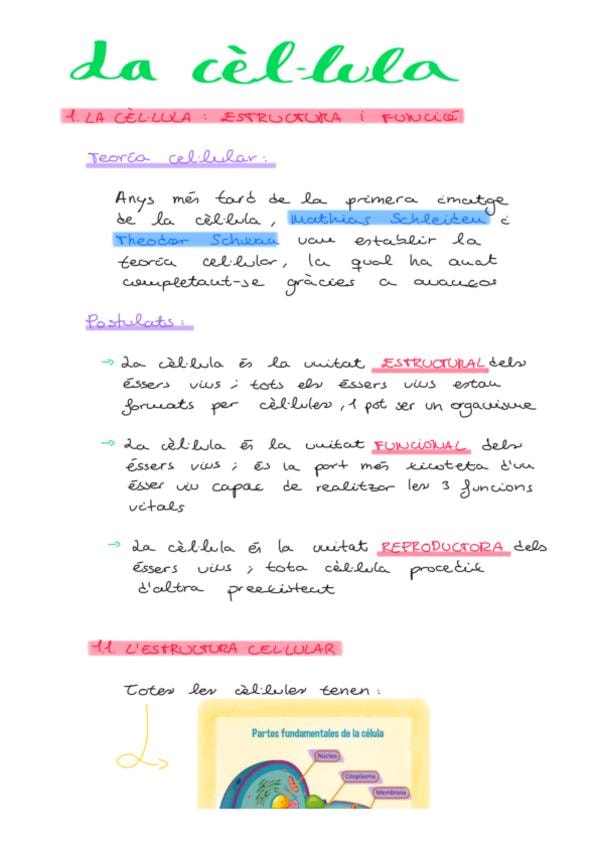 La cèl·lula
1. LA CÈL·LULA : ESTRUCTURA i FUNCIÓ
Teoria cel·lular :
Anys més tard de la primera imatge
de la cèl·lula, Mathias Schleiden i
Theodor Schwan van establir la
teoria cel·lular, la qual ha anat
completant-se gràcies a avanços
Postulats :
→ La cèl·lula és la unitat ESTRUCTURAL dels
éssers vius ; tots els éssers vius estan
formats per cèl·lules, 1 pot ser un organisme
→ La cèl·lula és la unitat FUNCIONAL dels
éssers vius ; és la part més xicoteta d'un
ésser viu capaç de realitzar les 3 funcions
vitals
→ La cèl·lula és la unitat REPRODUCTORA dels
éssers vius ; tota cèl·lula procedix
d'altra preexistent
1.1. L'ESTRUCTURA CEL·LULAR
Totes les cèl·lules tenen :
Partes fundamentales de la célula
Núcleo
Citoplasma
Membrana